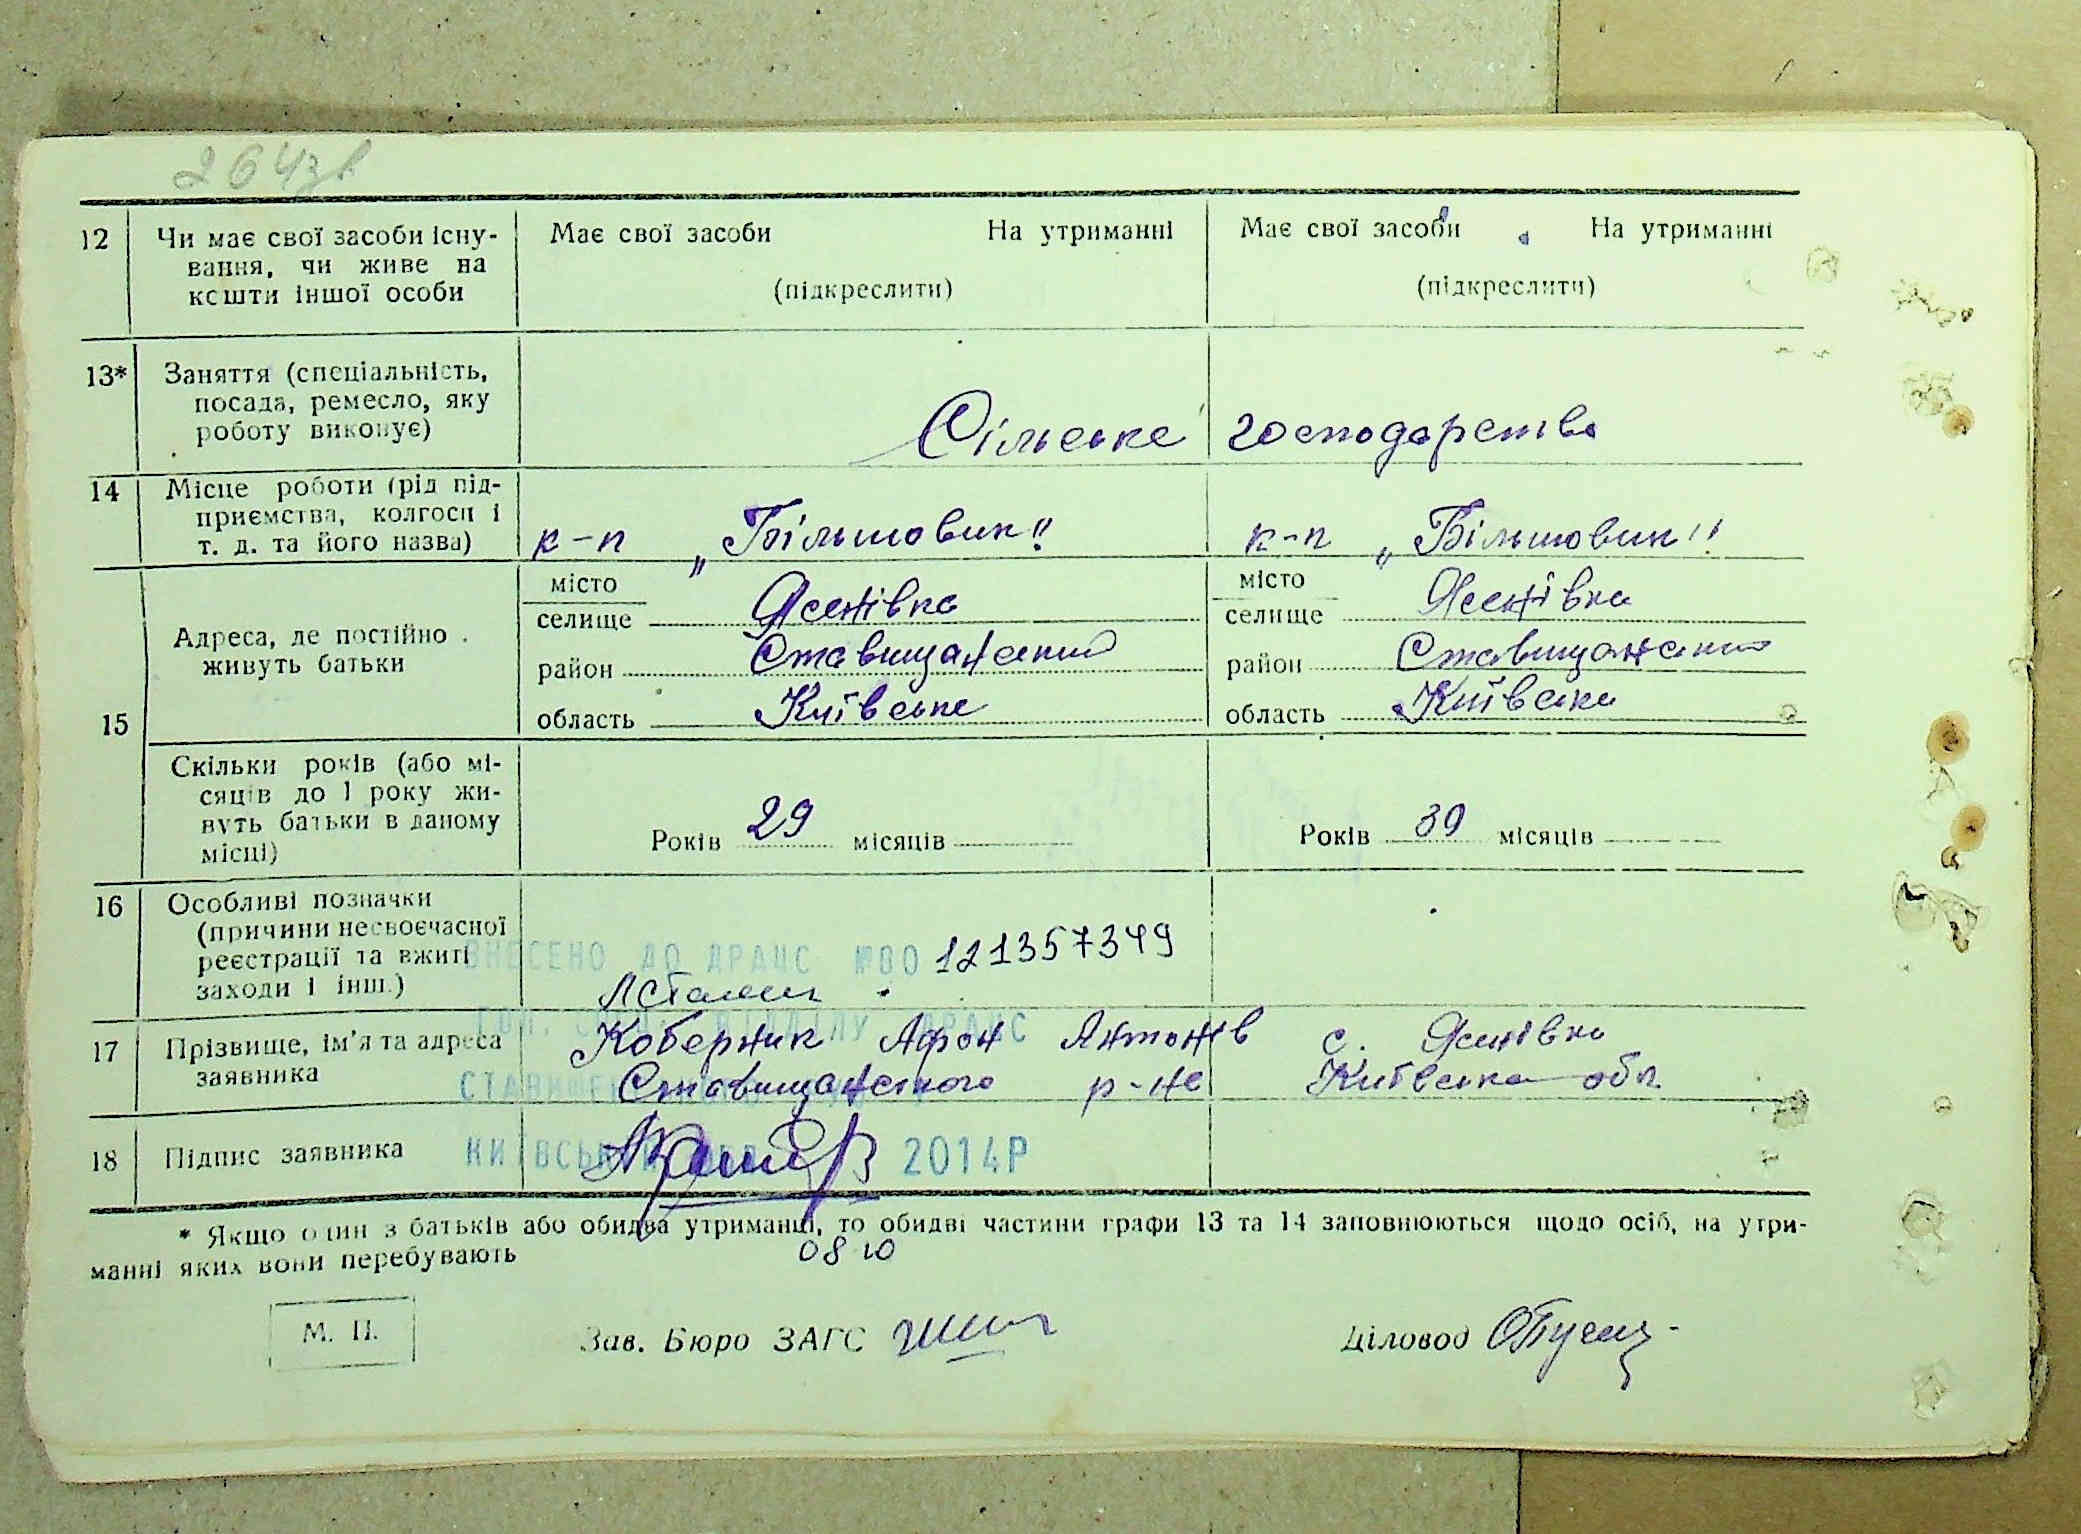 264зв
12 Чи має свої засоби існу- Має свої засоби На утриманні Має свої засоби На утриманні
вання, чи живе на
кошти іншої особи (підкреслити) (підкреслити)
13* Заняття (спеціальність,
посада, ремесло, яку Сільське господарство
роботу виконує)
14 Місце роботи (рід під-
приємства, колгосп і к-п „Більшовик" к-п „Більшовик"
т. д. та його назва)
15 Адреса, де постійно
живуть батьки
місто місто
селище Ясенівка селище Ясенівка
район Ставищанський район Ставищанський
область Київська область Київська
Скільки років (або мі-
сяців до 1 року жи-
вуть батьки в даному
місці)
Років 29 місяців Років 39 місяців
16 Особливі позначки
(причини несвоєчасної
реєстрації та вжиті
заходи і інш.)
ВНЕСЕНО ДО ДРАЦС №00 121357349
17 Прізвище, ім'я та адреса Коберник Афон Антонів с. Ясенівка
заявника Ставищанського р-не Київська обл
18 Підпис заявника
2014Р
* Якщо один з батьків або обидва утриманці, то обидві частини графи 13 та 14 заповнюються щодо осіб, на утри-
манні яких вони перебувають
М. П. Зав. Бюро ЗАГС Діловод